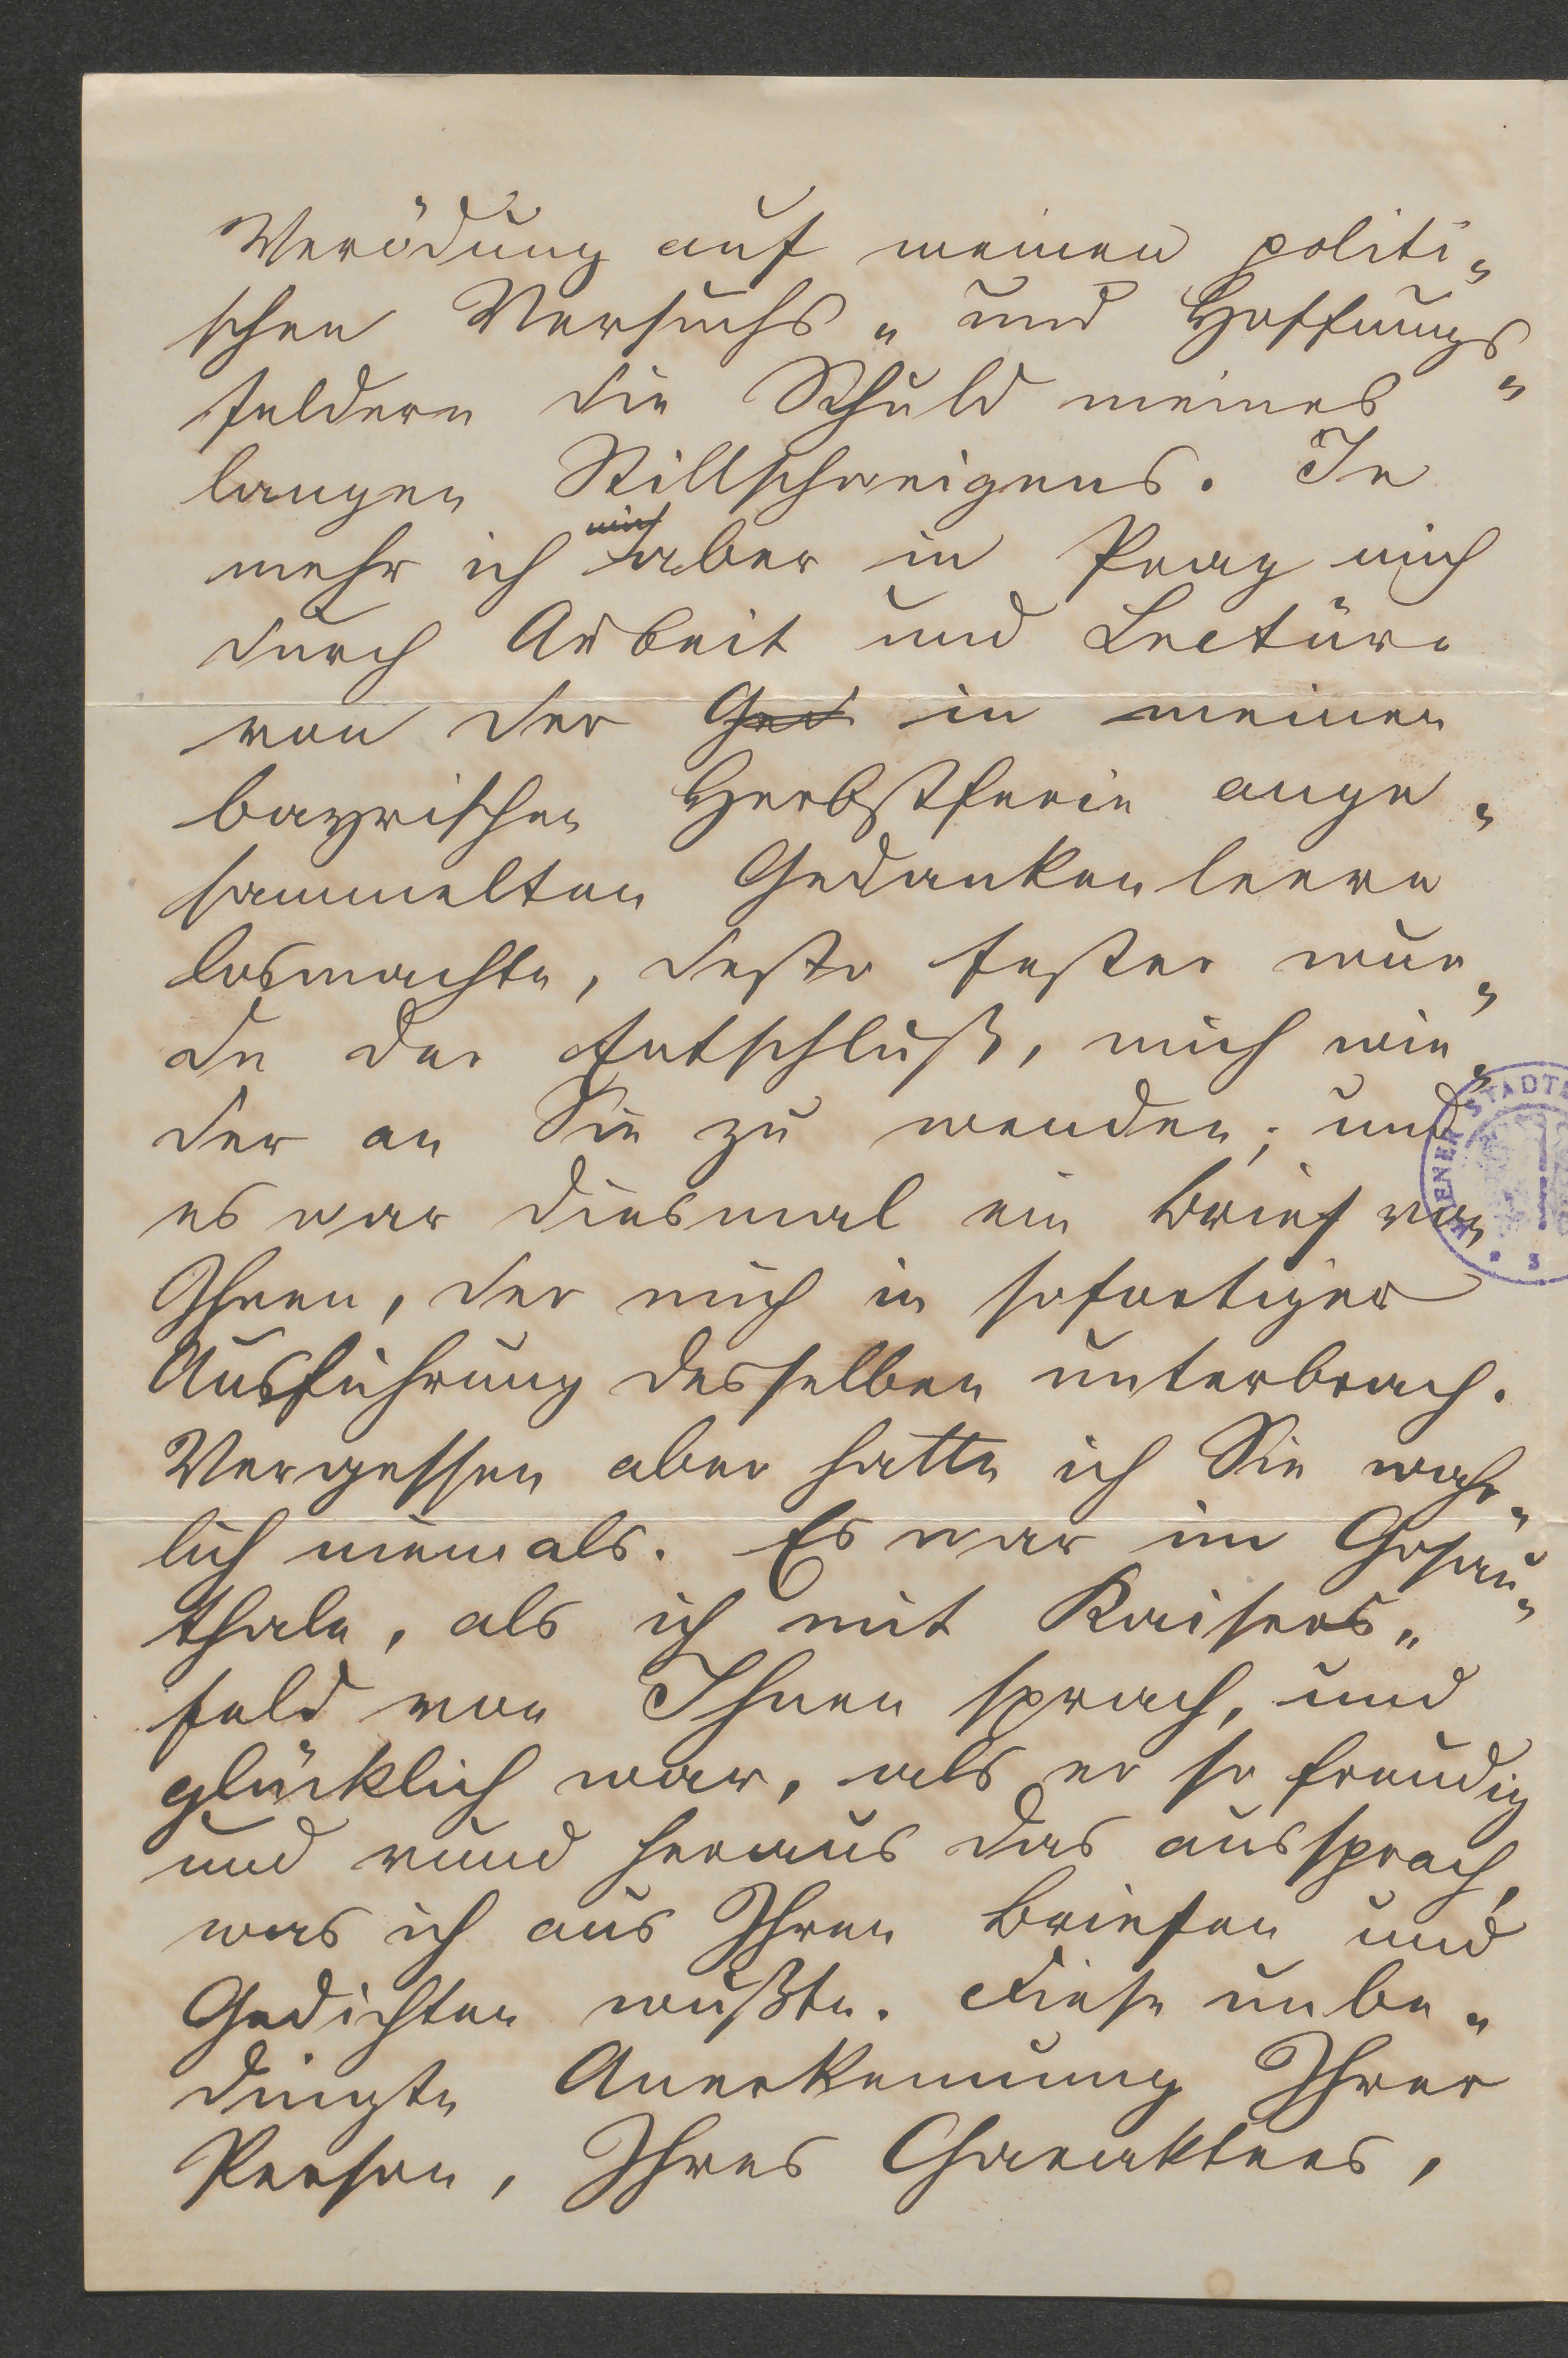 Verödung auf meinen politi-
schen Versuchs- und Hoffnungs-
feldern die Schuld meines
langen Stillschweigens. Je
mich
mehr ich aber in Prag mich
durch Arbeit und Lectüre
von der Ged in meiner
bayrischen Herbstferie ange-
sammelten Gedankenleere
losmachte, desto fester wur-
de der Entschluß, mich wie-
der an Sie zu wenden; und
es war diesmal ein Brief von
Ihnen, der mich in sofortiger
Ausführung desselben unterbrach.
Vergessen aber hatte ich Sie wahr-
lich niemals. Es war im Gosau-
thale, als ich mit Kaisers-
feld von Ihnen sprach, und
glücklich war, als er so freudig
und rund heraus das aussprach,
was ich aus Ihren Briefen und
Gedichten wußte. Diese unbe-
dingte Anerkennung Ihrer
Person, Ihres Charakters,
WIENER STADT